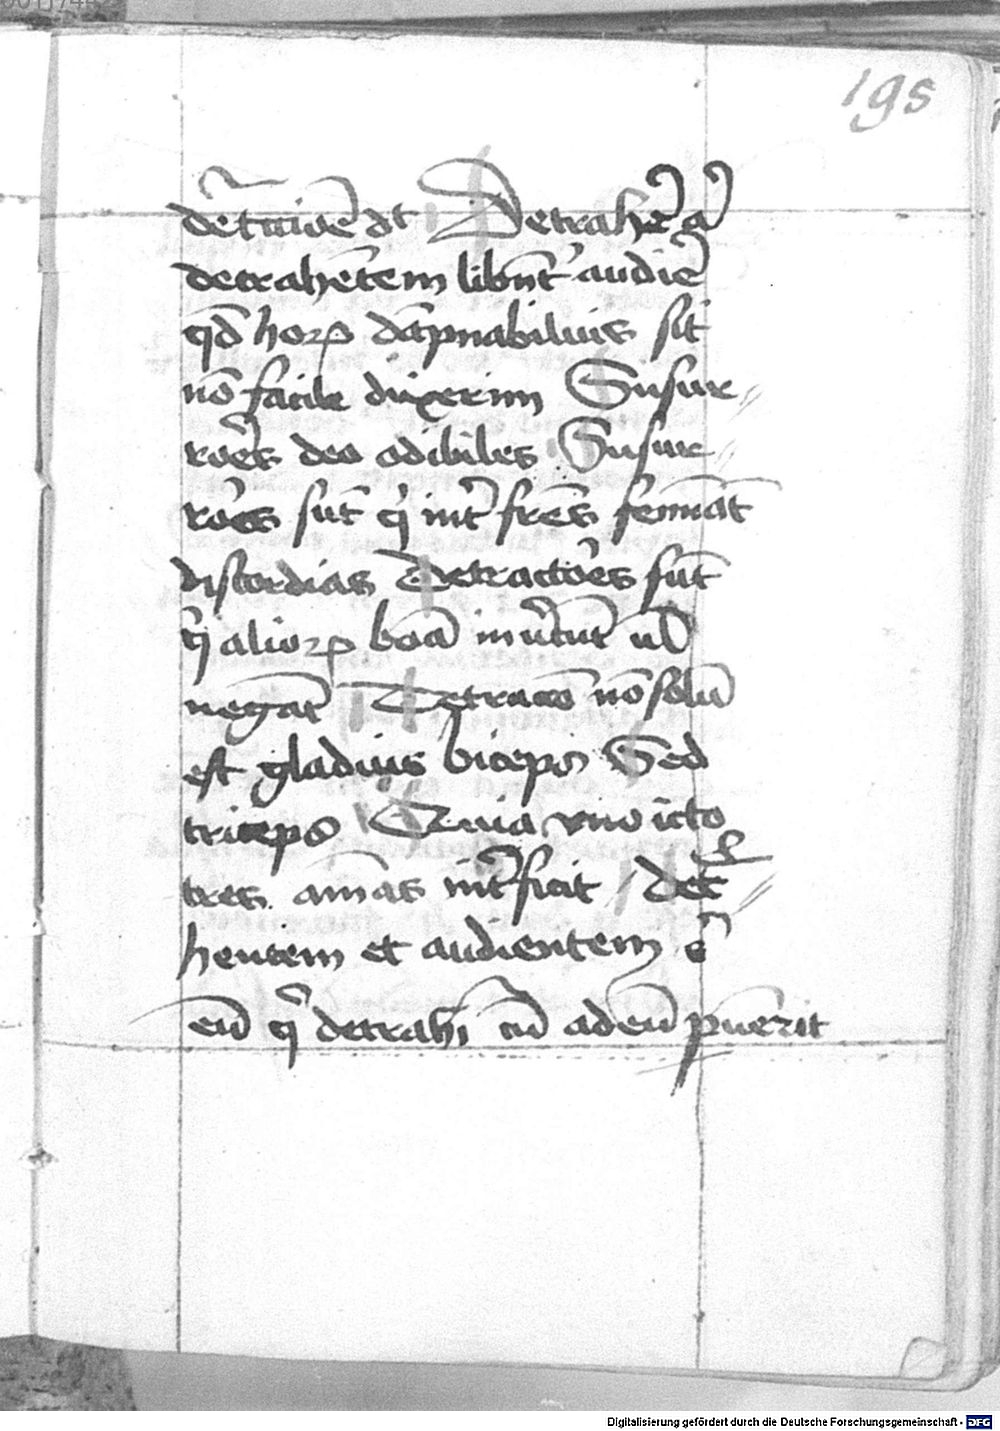 195
det̄ccioe͞ dt Detrahe͛ a͛
detrahētem libn̄t͛ audie͛
qd̄ hoꝝ dāpnabilius sit
nō facile dixerim Susur
roēs deo odibiles Susur
roēs sūt qi int͛ frēs semīāt
discordias Detractoēs sūt
qi alioꝝ boā inv͛tūt ul̄
negāt Detraccō nō solū
est gladius biceps Sed
triceps Qm̄ia vno ictu
tres aīmas int͛ficit / det͛
hentem et audientem ⁊
eū qi detrahi cū ad eū puērit
Digitalisierung gefördert durch die Deutsche Forschungsgemeinschaft - DFG